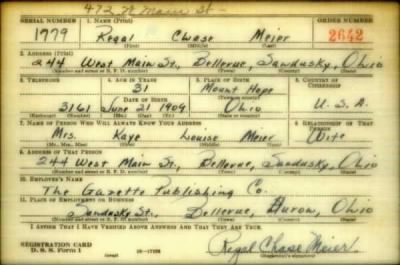 472 W Main St.
SERIAL NUMBER 1. NAME (Print) ORDER NUMBER
1779 Regal Chase Meier 2642
(First) (Middle) (Last)
2. ADDRESS (Print)
244 West Main St., Bellevue, Sandusky, Ohio
(Number and street or R. F. D. number) (Town) (County) (State)
3. TELEPHONE 4. AGE IN YEARS 5. PLACE OF BIRTH 6. COUNTRY OF CITIZENSHIP
31 Mount Hope
DATE OF BIRTH
3161 June 21 1909 Ohio U.S.A.
(Exchange) (Number) (Mo.) (Day) (Yr.) (State or country)
7. NAME OF PERSON WHO WILL ALWAYS KNOW YOUR ADDRESS 8. RELATIONSHIP OF THAT PERSON
Mrs. Kaye Louise Meier Wife
(Mr., Mrs., Miss) (First) (Middle) (Last)
9. ADDRESS OF THAT PERSON
244 West Main St., Bellevue, Sandusky, Ohio
(Number and street or R. F. D. number) (Town) (County) (State)
10. EMPLOYER'S NAME
The Gazette Publishing Co.
11. PLACE OF EMPLOYMENT OR BUSINESS
Sandusky St., Bellevue, Huron, Ohio
(Number and street or R. F. D. number) (Town) (County) (State)
I AFFIRM THAT I HAVE VERIFIED ABOVE ANSWERS AND THAT THEY ARE TRUE.
REGISTRATION CARD
D. S. S. Form 1
Regal Chase Meier
(Registrant's signature)